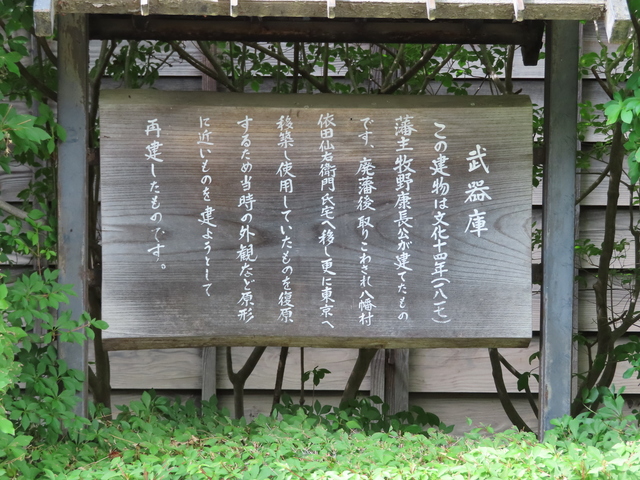 武器庫
この建物は文化十四年(一八一七)
藩主牧野康長公が建てたもの
です、廃藩後取りこわされ八幡村
依田仙右衛門氏宅へ移し更に東京へ
移築し使用していたものを復原
するため当時の外観など原形
に近いものを建ようとして
再建したものです。